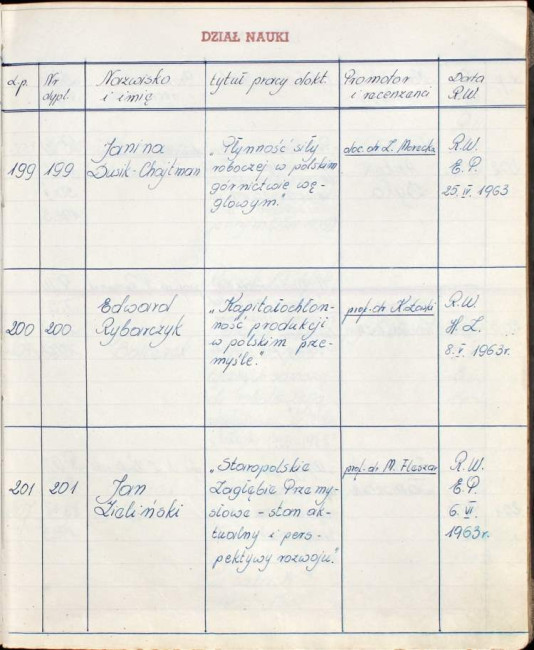 DZIAŁ NAUKI
L.p.
Nr
dypl.
Nazwisko
i imię
tytuł pracy dokt.
Promotor
i recenzenci
Data
R.W.
199
199
Janina
Dwik-Chajtman
„Płynność siły
roboczej w polskim
górnictwie wę-
glowym."
doc. dr L.
R.W.
E.P.
25.IV.1963
200
200
Edward
Rybarczyk
„Kapitałochłon-
ność produkcji
w polskim prze-
myśle."
prof. dr K.
R.W.
H.Z.
8.V.1963r.
201
201
Jan
Zieliński
„Staropolskie
Zagłębie Przemy-
słowe - stan ak-
tualny i pers-
pektywy rozwoju."
prof. dr M. Fleszar
R.W.
E.P.
6.VI.
1963r.